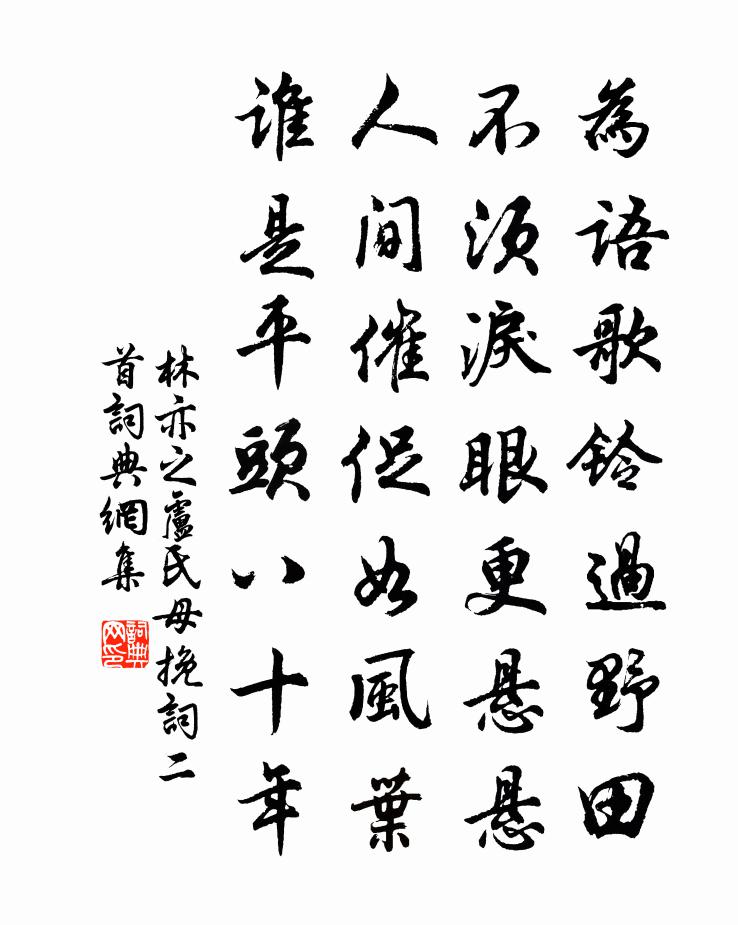 為語歌鈴過野田
不須淚眼更懸懸
人間催促如風葉
誰是平頭八十年
林亦之盧氏母挽詞二
首詞典網集
詞典
网印